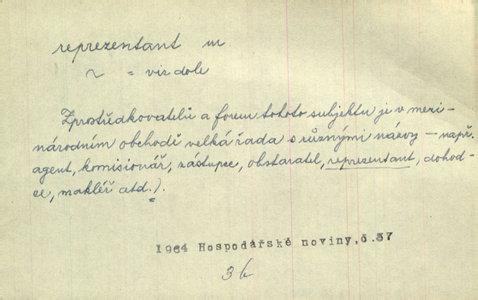 reprezentant m
~ = viz dole
Zprostředkovatelů a forem tohoto subjektu je v mezi-
národním obchodě velká řada s různými názvy – např.
agent, komisionář, zástupce, obstaratel, reprezentant, dohod-
ce, makléř atd.).
1964 Hospodářské noviny, č.37
3 k